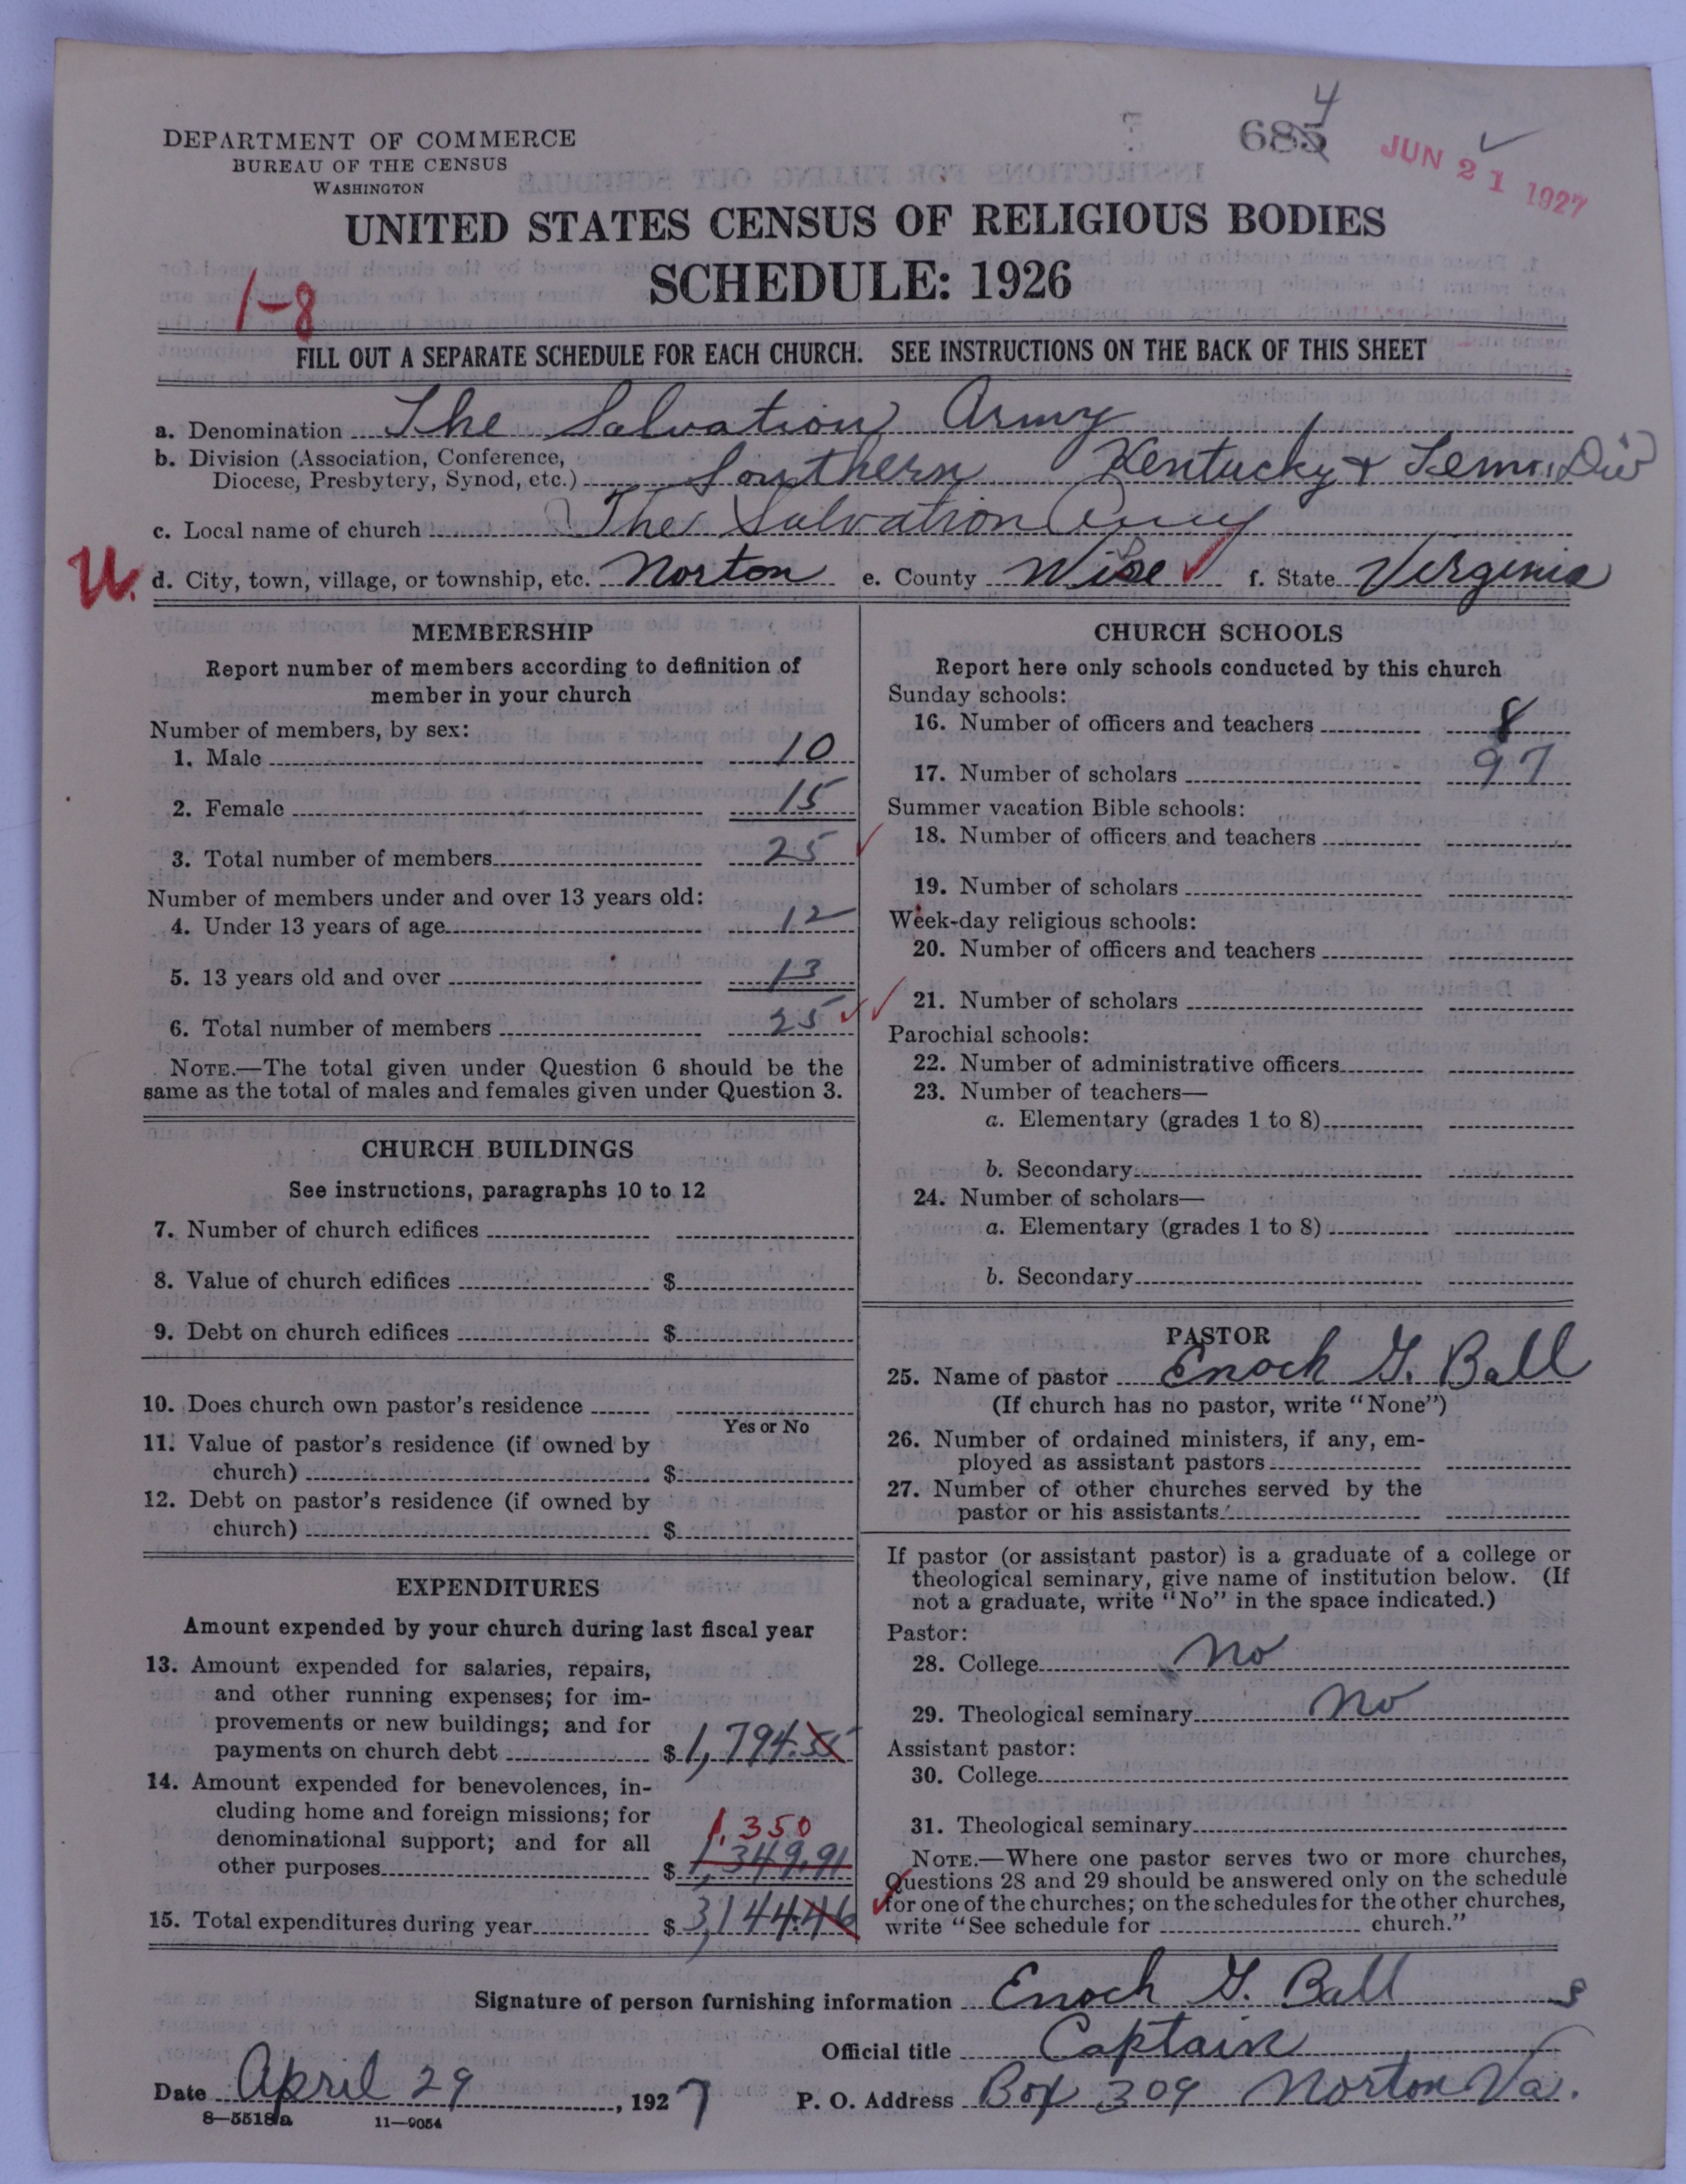 4
685
JUN 21 1927
DEPARTMENT OF COMMERCE
BUREAU OF THE CENSUS
WASHINGTON
UNITED STATES CENSUS OF RELIGIOUS BODIES
SCHEDULE: 1926
1-8
FILL OUT A SEPARATE SCHEDULE FOR EACH CHURCH. SEE INSTRUCTIONS ON THE BACK OF THIS SHEET
a. Denomination The Salvation Army
b. Division (Association, Conference,
Diocese, Presbytery, Synod, etc.) Southern Kentucky & Tenn. Div
c. Local name of church The Salvation Army
d. City, town, village, or township, etc. Norton e. County Wise f. State Virginia
MEMBERSHIP
Report number of members according to definition of
member in your church
Number of members, by sex:
1. Male 10
2. Female 15
3. Total number of members 25
Number of members under and over 13 years old:
4. Under 13 years of age 12
5. 13 years old and over 13
6. Total number of members 25
NOTE.—The total given under Question 6 should be the
same as the total of males and females given under Question 3.
CHURCH BUILDINGS
See instructions, paragraphs 10 to 12
7. Number of church edifices
8. Value of church edifices $
9. Debt on church edifices $
10. Does church own pastor's residence
Yes or No
11. Value of pastor's residence (if owned by
church) $
12. Debt on pastor's residence (if owned by
church) $
EXPENDITURES
Amount expended by your church during last fiscal year
13. Amount expended for salaries, repairs,
and other running expenses; for im-
provements or new buildings; and for
payments on church debt $ 1,794.55
14. Amount expended for benevolences, in-
cluding home and foreign missions; for
denominational support; and for all
1,350
other purposes $ 1,349.91
15. Total expenditures during year $ 3,144.46
CHURCH SCHOOLS
Report here only schools conducted by this church
Sunday schools:
16. Number of officers and teachers 8
17. Number of scholars 97
Summer vacation Bible schools:
18. Number of officers and teachers
19. Number of scholars
Week-day religious schools:
20. Number of officers and teachers
21. Number of scholars
Parochial schools:
22. Number of administrative officers
23. Number of teachers—
a. Elementary (grades 1 to 8)
b. Secondary
24. Number of scholars—
a. Elementary (grades 1 to 8)
b. Secondary
PASTOR
25. Name of pastor Enoch G. Ball
(If church has no pastor, write "None")
26. Number of ordained ministers, if any, em-
ployed as assistant pastors
27. Number of other churches served by the
pastor or his assistants
If pastor (or assistant pastor) is a graduate of a college or
theological seminary, give name of institution below. (If
not a graduate, write "No" in the space indicated.)
Pastor:
28. College No
29. Theological seminary No
Assistant pastor:
30. College
31. Theological seminary
NOTE.—Where one pastor serves two or more churches,
Questions 28 and 29 should be answered only on the schedule
for one of the churches; on the schedules for the other churches,
write "See schedule for church."
Signature of person furnishing information Enoch G. Ball
Official title Captain
Date April 29, 1927 P. O. Address Box 309 Norton Va.
8-5518a 11-9054